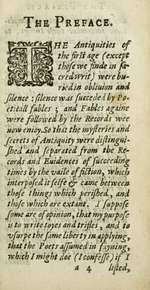 THE PREFACE.
THE Antiquities of
the first age (except
those we finde in sa-
cred writ) were bu-
ried in oblivion and
silence: silence was succeeded by Po-
eticall fables; and Fables againe
were followed by the Records wee
now enjoy. So that the mysteries and
secrets of Antiquity were distingui-
shed and separated from the Re-
cords and Euidences of succeeding
times by the vaile of fiction, which
interposed it selfe & came between
those things which perished, and
those which are extant. I suppose
some are of opinion, that my purpose
is to write toyes and trifles, and to
vsurpe the same liberty in applying,
that the Poets assumed in faining,
which I might doe (I confesse) if I
a 4 listed,